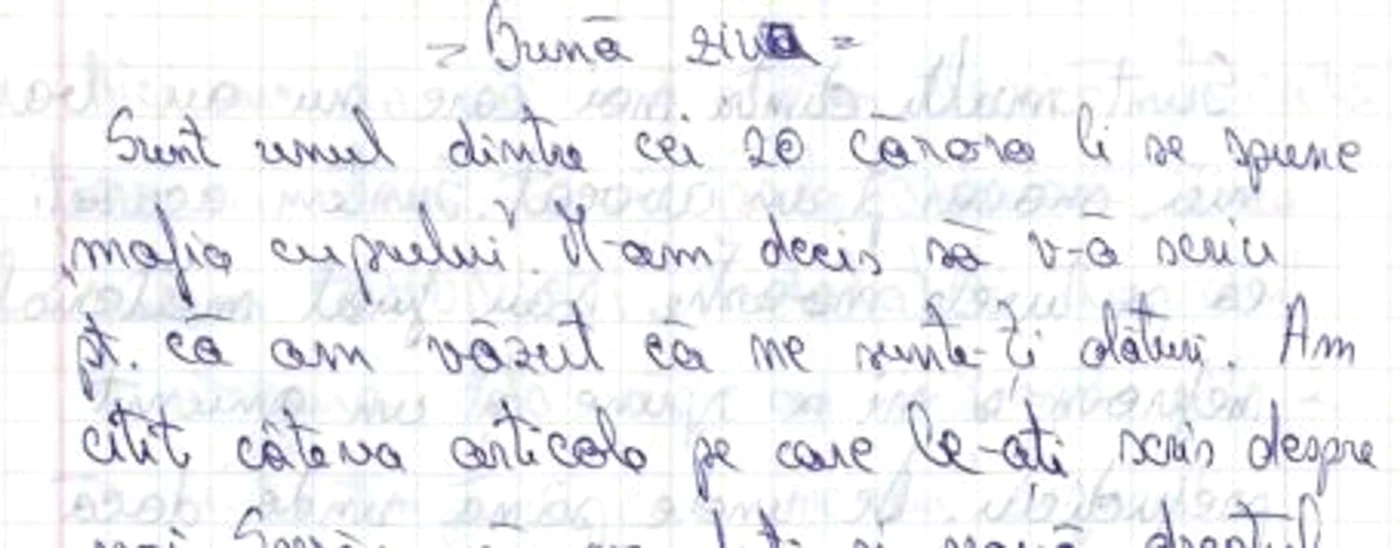 = Bună ziua =
Sunt unul dintre cei 20 cărora li se spune
„mafia cuprului". M-am decis să v-ă scriu
pt. că am văzut că ne sunte-ți alături. Am
citit câteva articole pe care le-ați scris despre
noi